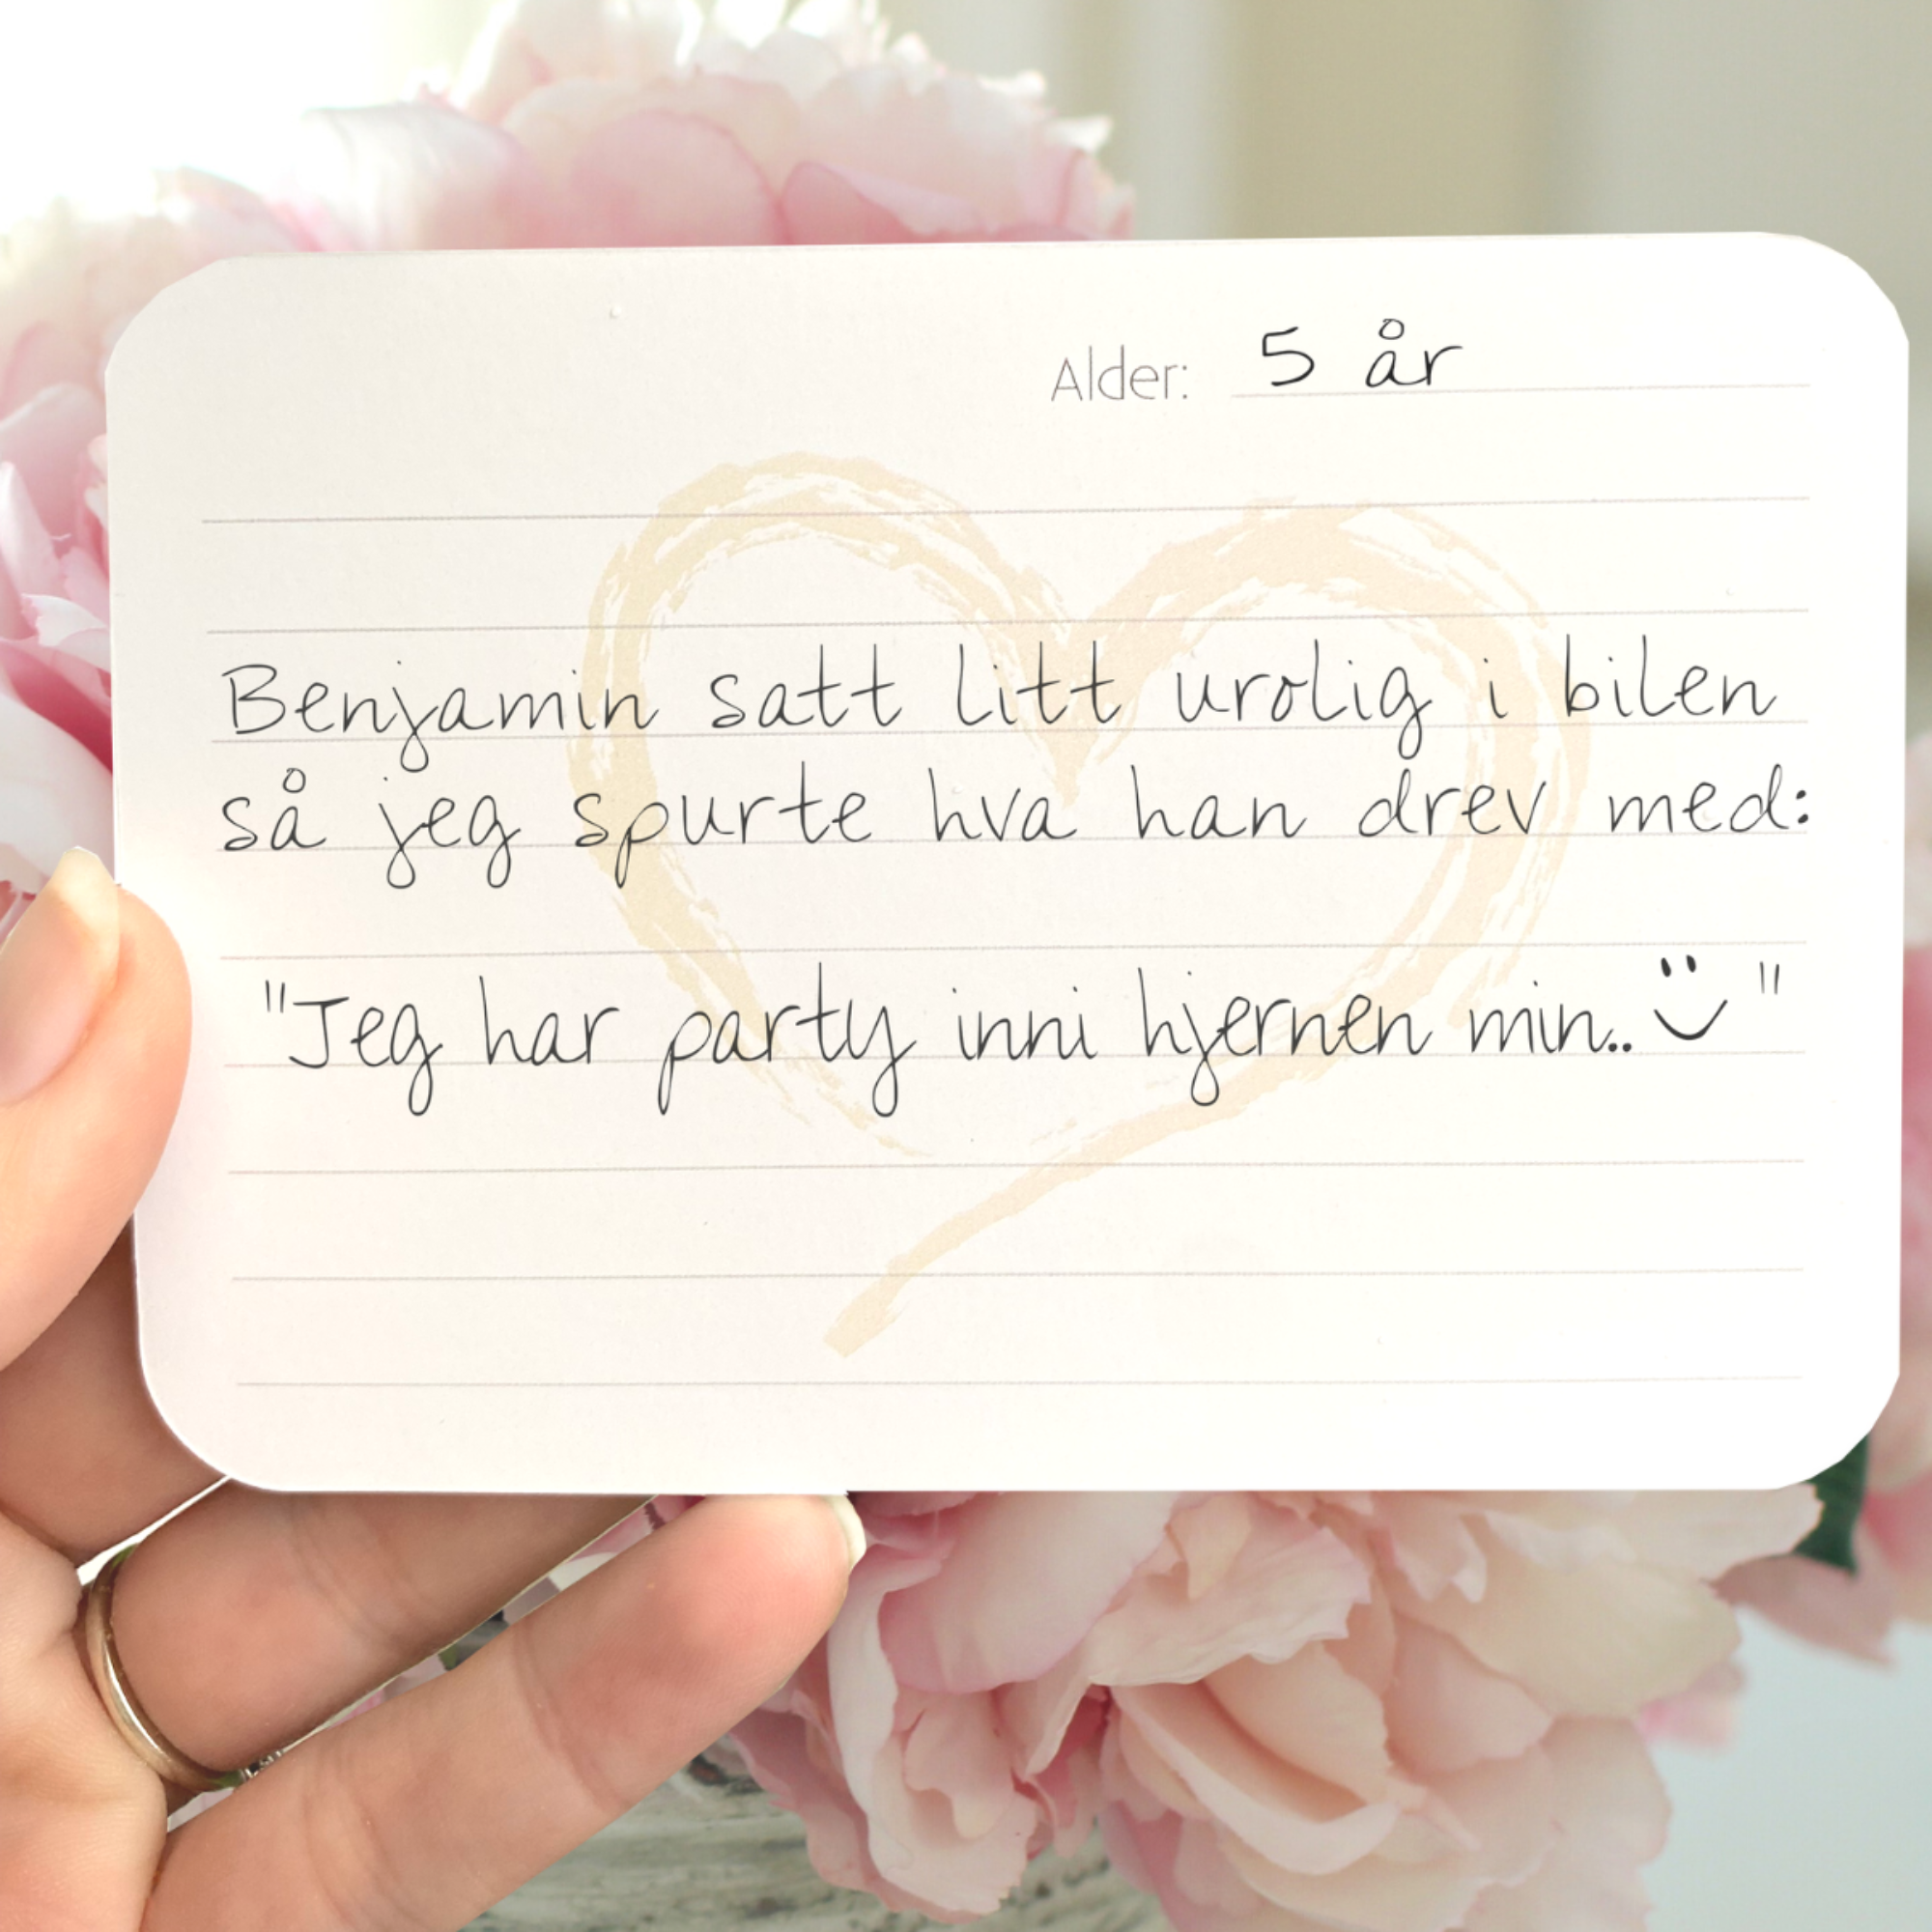 Alder: 5 år
Benjamin satt litt urolig i bilen
så jeg spurte hva han drev med:
"Jeg har party inni hjernen min.. "